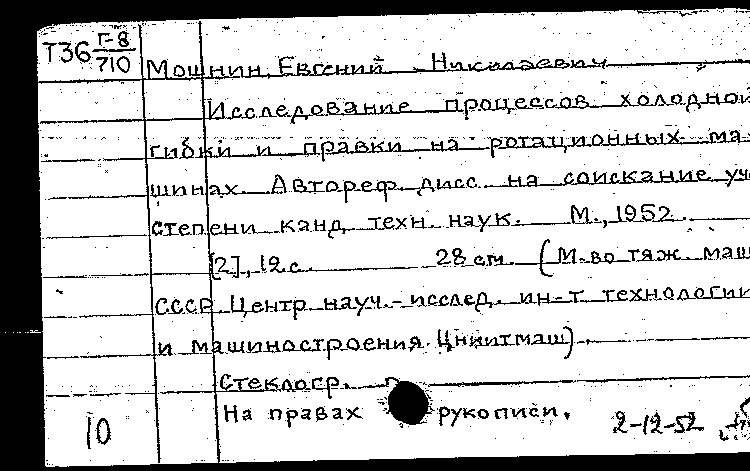 Т36 Г-8/710
Мошнин, Евгений Николаевич
Исследование процессов холодной
гибки и правки на ротационных ма-
шинах. Автореф. дисс. на соискание уч.
степени канд. техн. наук. М., 1952.
[2], 12 с. 28 см. (М-во тяж. маш
СССР. Центр. науч.-исслед. ин-т технологии
и машиностроения. Цниитмаш).
Стеклогр.
На правах рукописи.
10 2-12-52